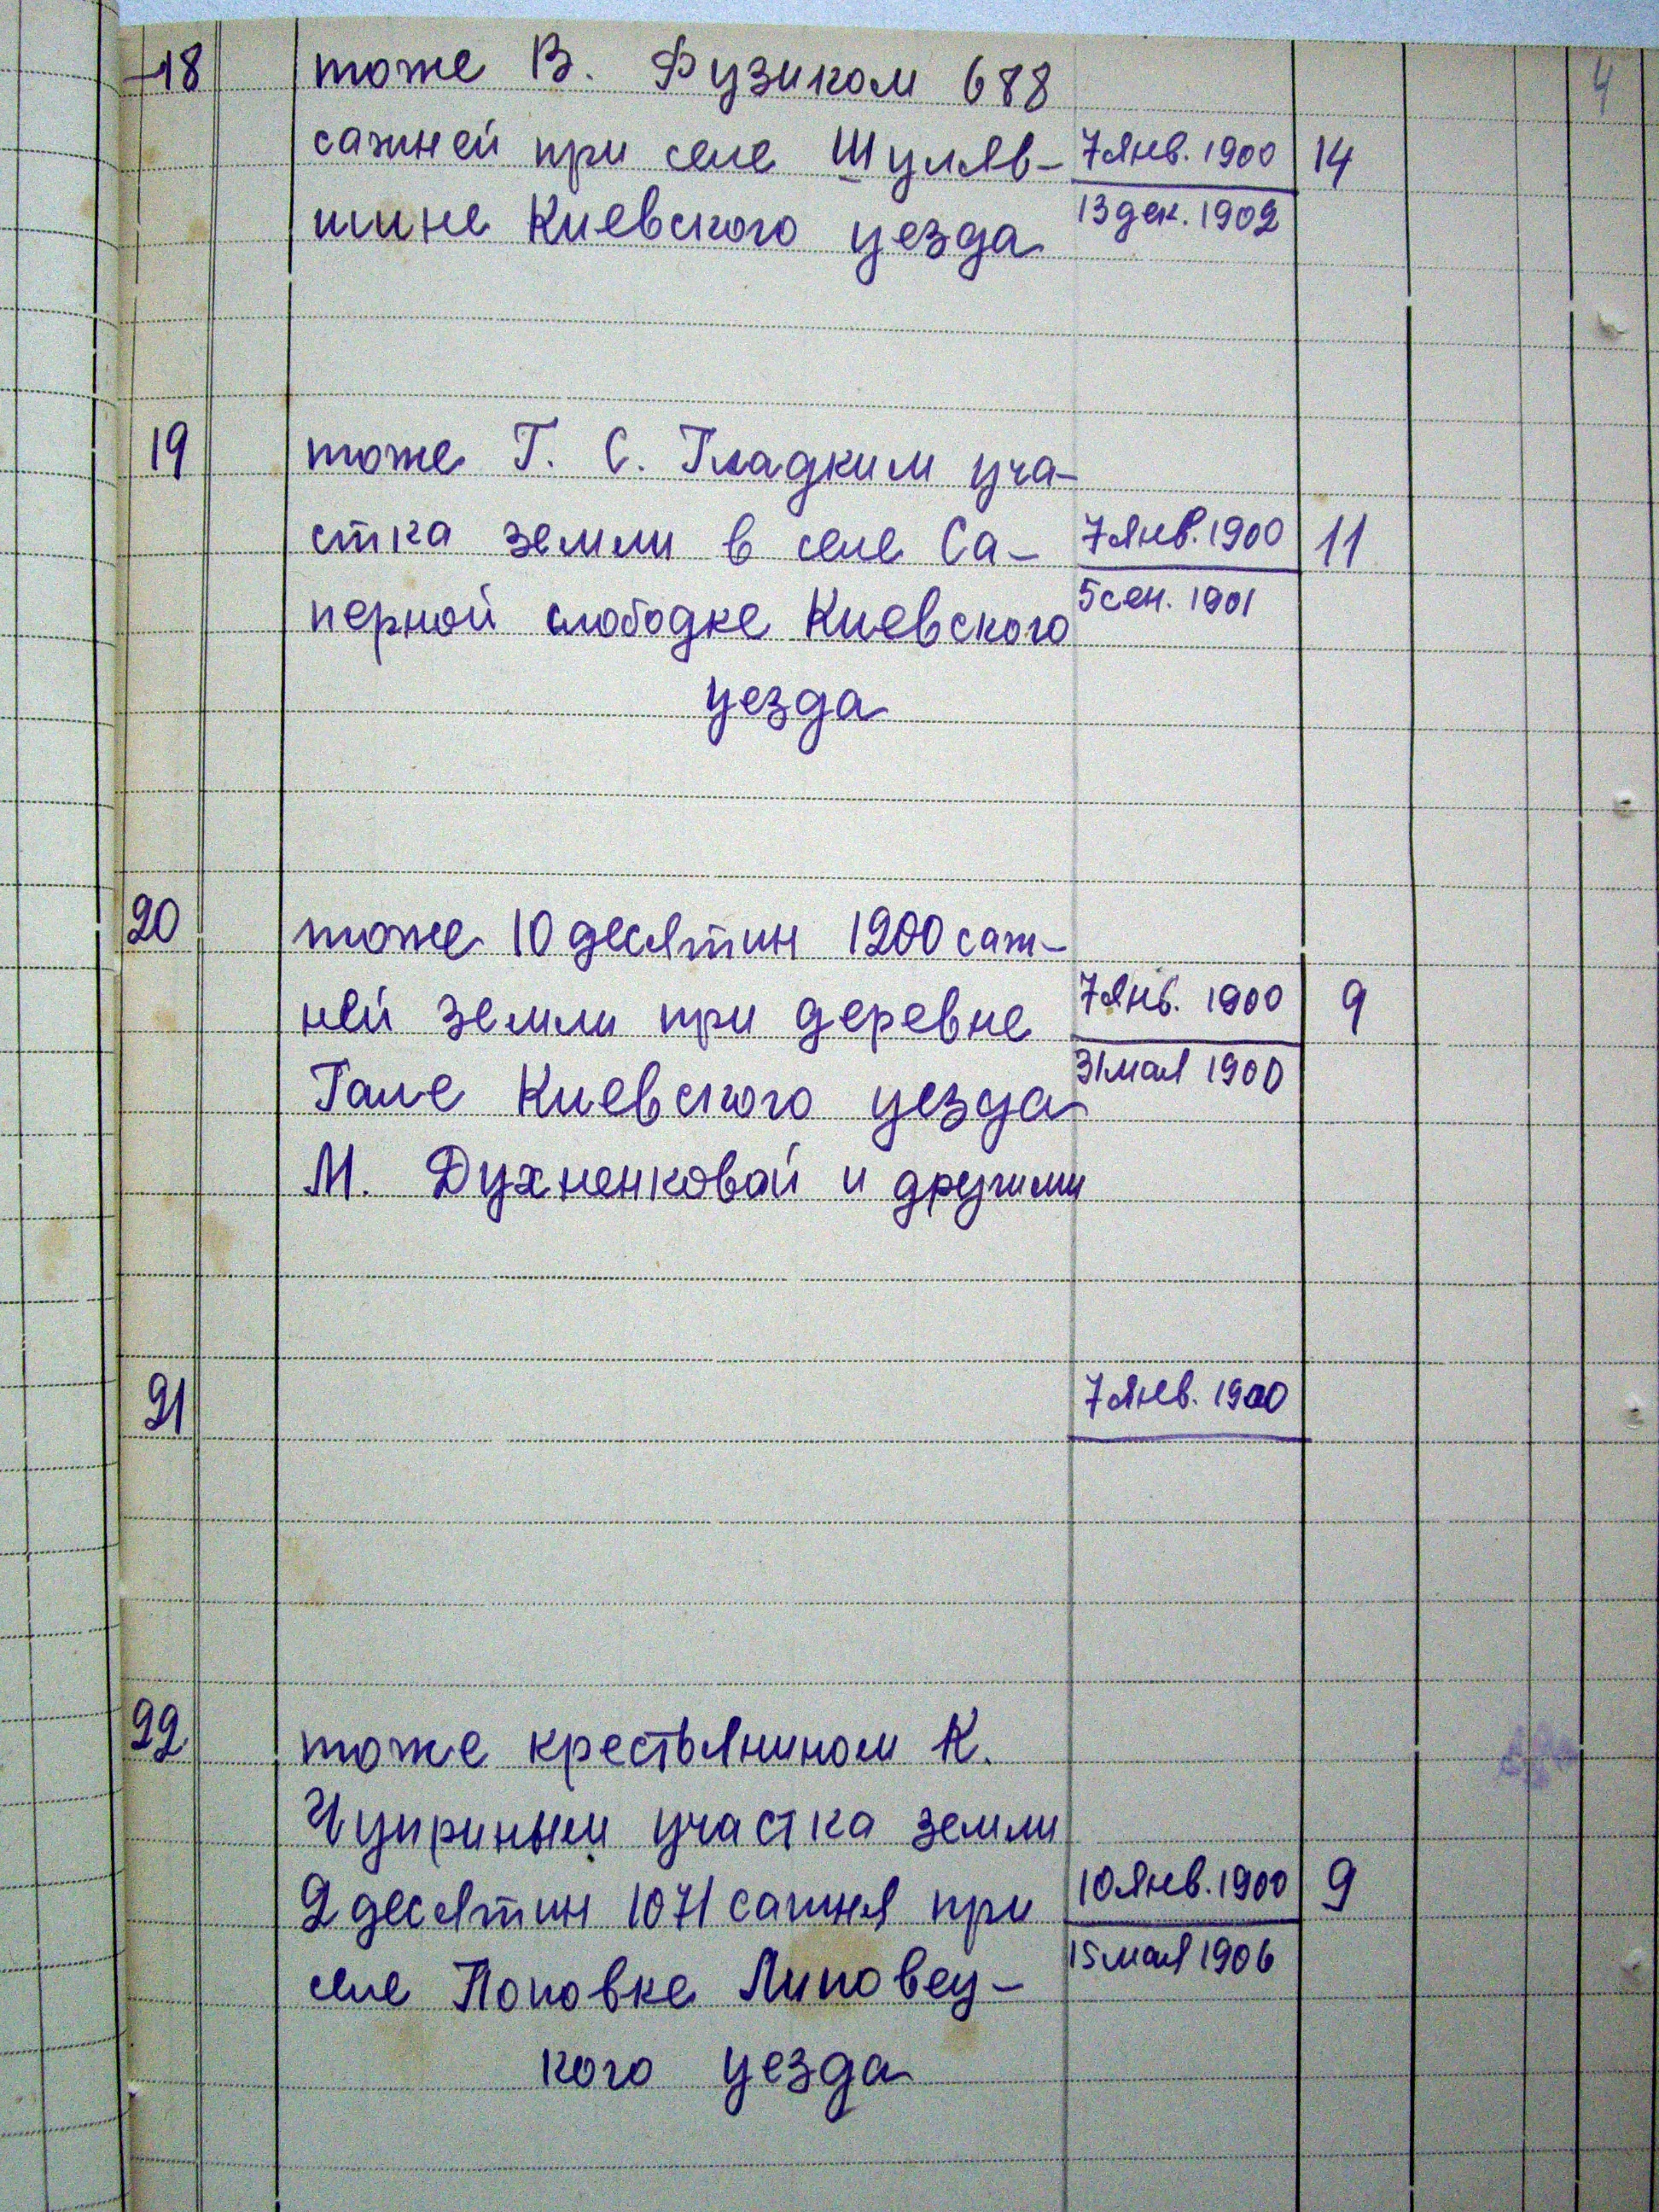 4
18 тоже В. Фузиком 688
сажней при селе Шуляв- 7 янв. 1900 14
шине Киевского уезда 13 дек. 1902
19 тоже Г. С. Гладким уча-
стка земли в селе Са- 7 янв. 1900 11
перной слободке Киевского 5 сен. 1901
уезда
20 тоже 10 десятин 1200 саж-
ней земли при деревне 7 янв. 1900 9
Гале Киевского уезда 31 мая 1900
М. Духненковой и другими
21 7 янв. 1900
22 тоже крестьянином К.
Чуприным участка земли
2 десятин 1071 сажня при 10 янв. 1900 9
селе Поповке Липовец- 15 мая 1906
кого уезда